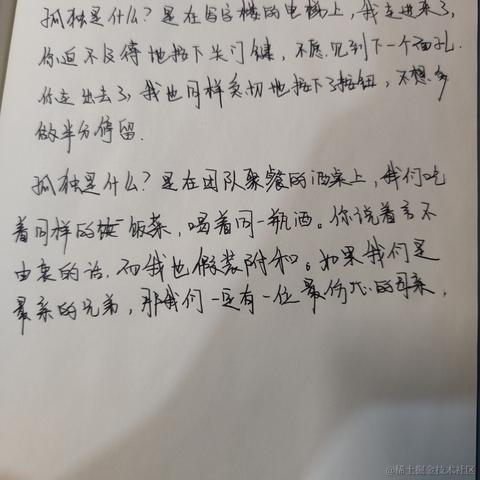 孤独是什么？是在写字楼的电梯上，我走进来了，
你迫不及待地按下关门键，不愿见到下一个面孔.
你走出去了，我也同样急切地按下了按钮，不想多
做半分停留.
孤独是什么？是在团队聚餐的酒桌上，我们吃
着同样的饭菜，喝着同一瓶酒。你说着言不
由衷的话，而我也假装附和。如果我们是
最亲的兄弟，那我们一定有一位最伤心的母亲，
@稀土掘金技术社区